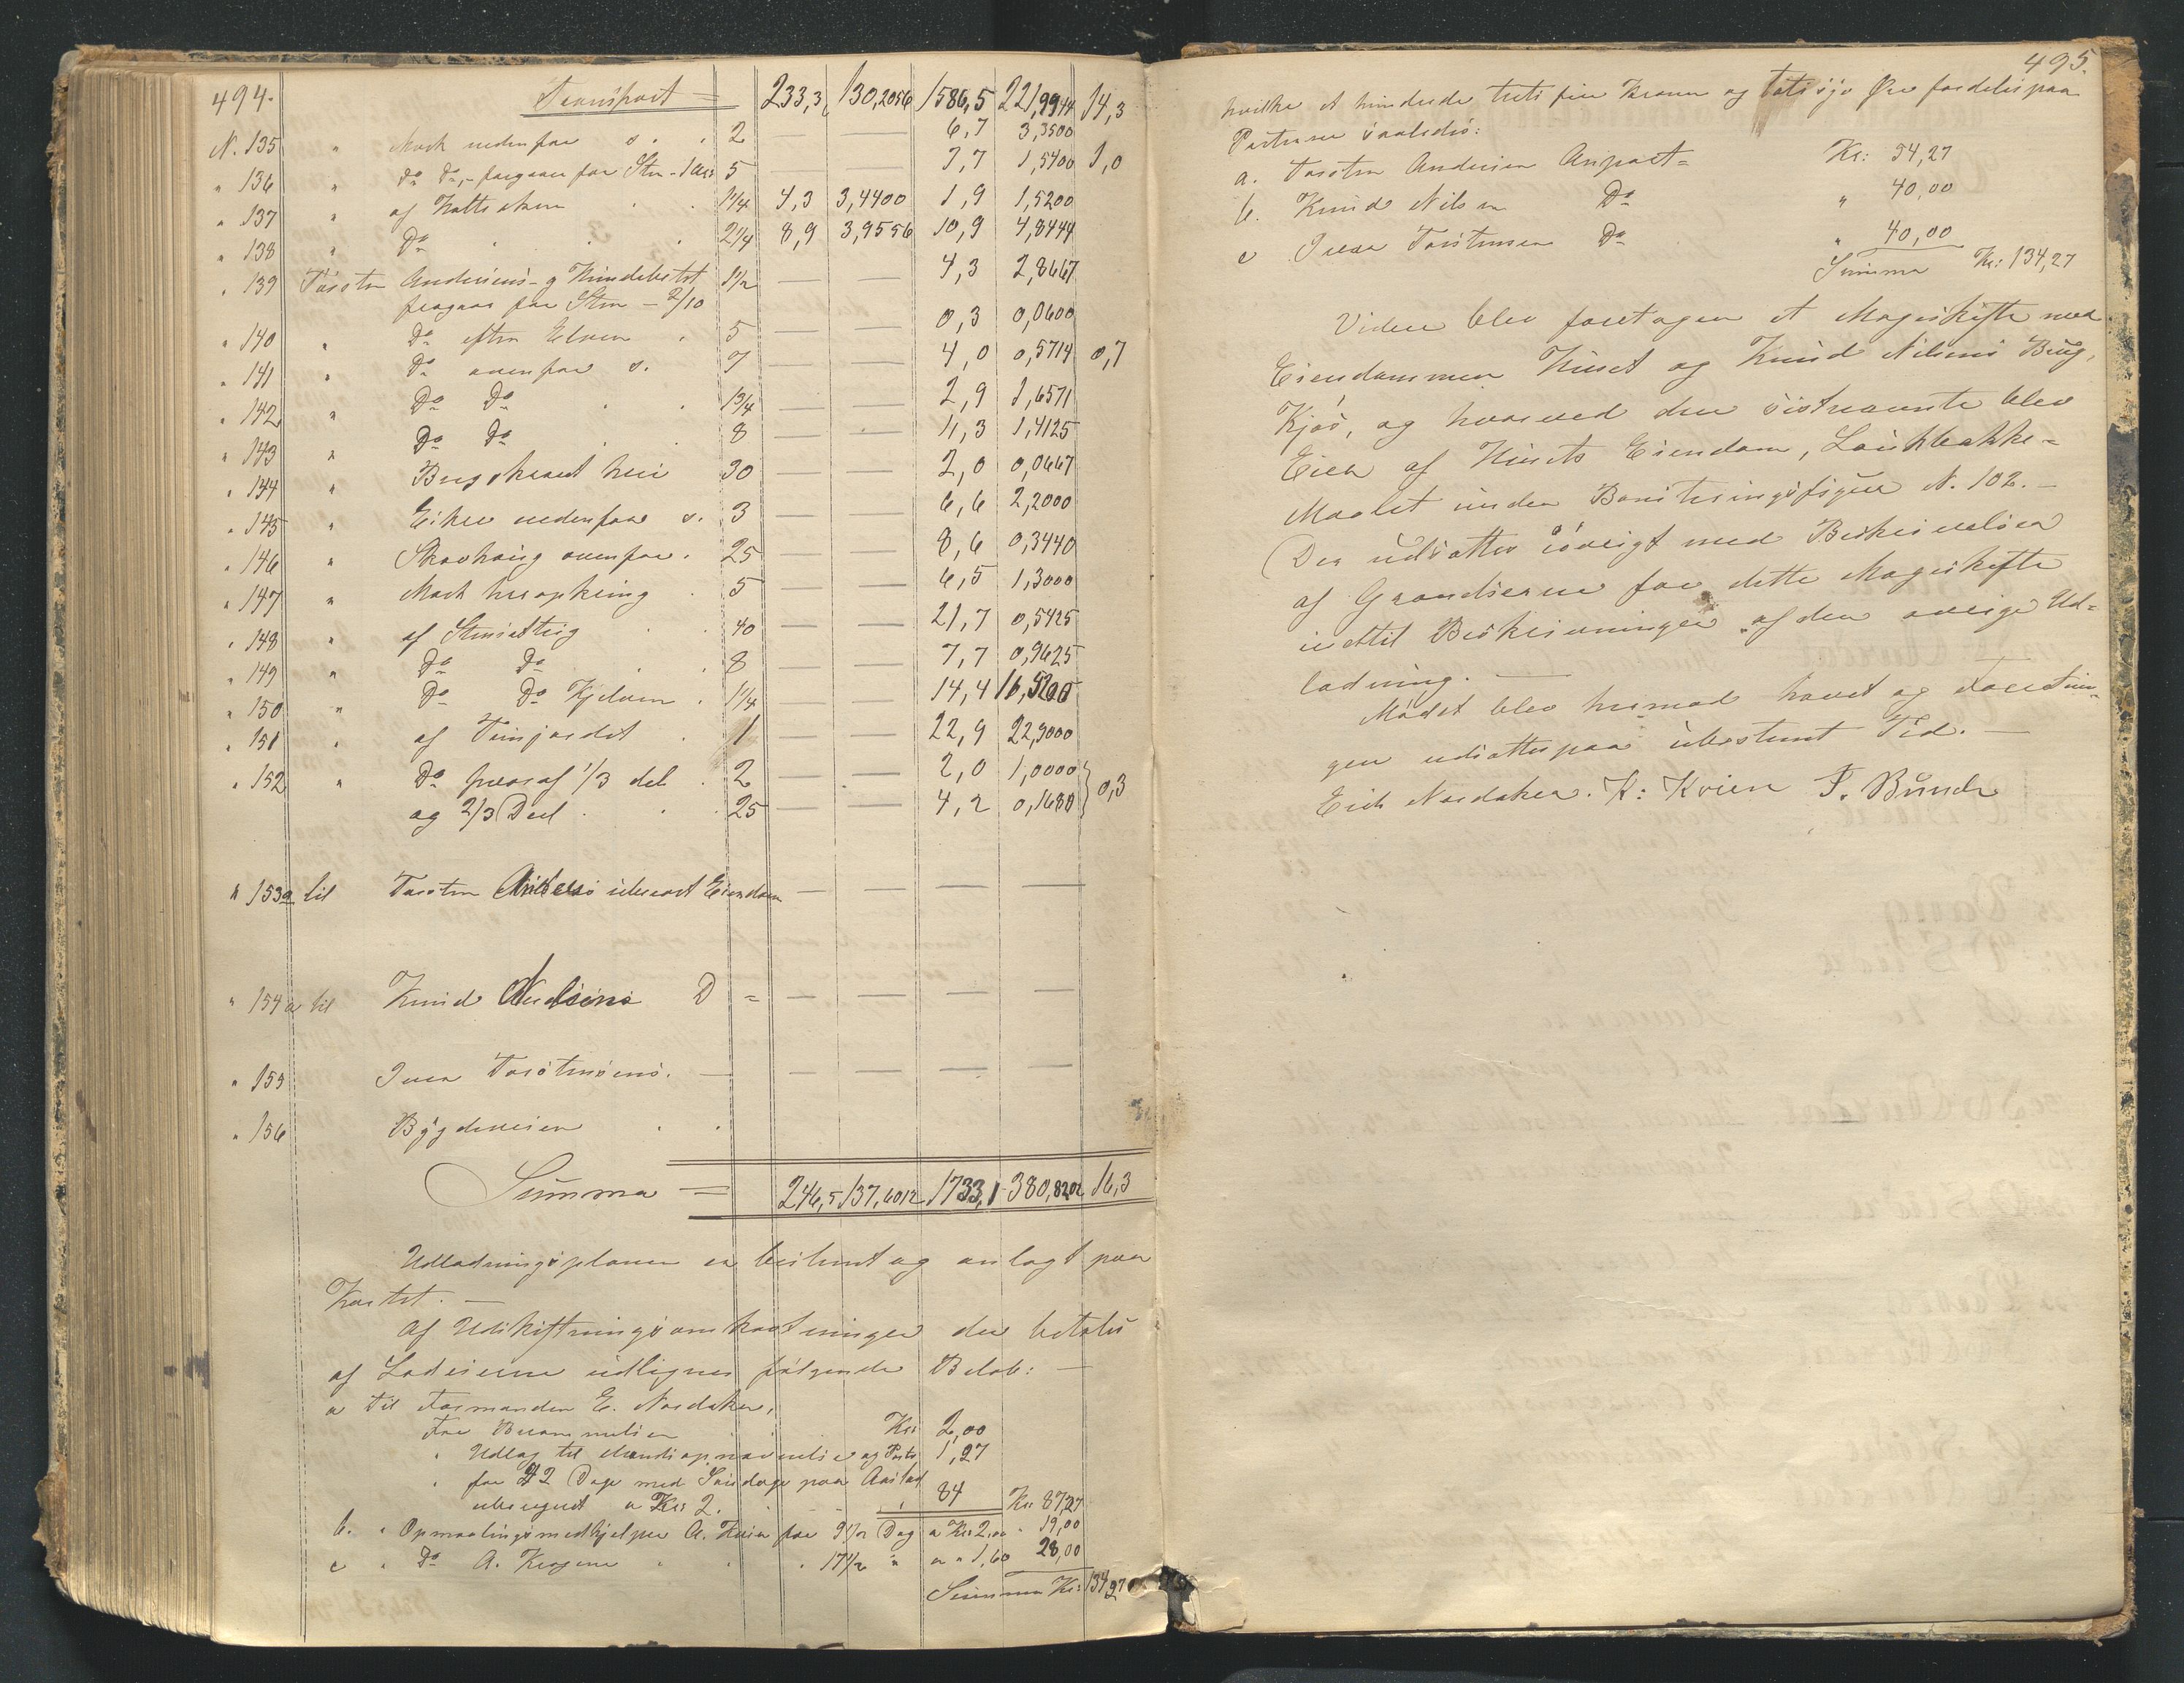 494.
Transport = 233,3 130,2056 1586,5 221,9944 14,3
N. 135 " Mark nedenfor d. . 2 — — 6,7 3,3500
" 136 " Do Do, - fragaar for Sten - 1 Ar: 5 — — 7,7 1,5400 1,0
" 137 " af Kattaker . . 1 1/4 4,3 3,4400 1,9 1,5200
" 138 " Do . . . 2 1/4 8,9 3,9556 10,9 4,8444
" 139 Torsten Andersens 1 1/2 — — 4,3 2,8667
fragaar for Sten - 2/10
" 140 " Do efter Elven . 5 — — 0,3 0,0600
" 141 " Do ovenfor d. 7 — — 4,0 0,5714 0,7
" 142 " Do Do . . 1 3/4 — — 2,9 1,6571
" 143 " Do Do . . 8 — — 11,3 1,4125
" 144 " hei 30 — — 2,0 0,0667
" 145 " nedenfor d. 3 — — 6,6 2,2000
" 146 " Skovhaug ovenfor . 25 — — 8,6 0,3440
" 147 " Mark . 5 — — 6,5 1,3000
" 148 " af . . 40 — — 21,7 0,5425
" 149 " Do Do . . 8 — — 7,7 0,9625
" 150 " Do Do . 1 1/4 — — 14,4 11,5200
" 151 " af Tunjordet . 1 — — 22,9 22,9000
" 152 " Do hvoraf 1/3 del . 2 — — 2,0 1,0000
og 2/3 Deel . . 25 — — 4,2 0,1680 } 0,3
" 153 a til Torsten Anders's Eiendom — — — —
" 154 a til Knud Nielsens D = — — — —
" 155 Iver Torstensens. — — — — —
" 156 Bygdeveien . .
Summa = 246,5 137,6012 1733,1 380,8202 16,3
Udlodningsplanen er bestemt og anlagt paa
Kartet. —
Af Udskiftningsomkostninger der betales
af Lodeierne udlignes følgende Beløb: —
a Til Formanden E. Nordaker,
For Berammelsen Kr: 2,00
" Udlag til Mandsopnævnelse og Porto 1,27
" for 42 Dage med Søndage paa Aastad
uberegnet a Kr: 2. . 84 Kr: 87,27
b. " Opmaalingsmedhjelper A. Kvien for 9 1/2 Dag a Kr: 2,00 " 19,00
c " Do A. . . 17 1/2 " a " 1,60 28,00
Summa Kr: 134,27
495.
hvilke et hundrede treti fire Kroner og Øre fordeles paa
Parterne saaledes:
a. Torsten Andersen Anpart = Kr: 54,27
b. Knud Nilsen Do " 40,00
c Iver Torstensen Do " 40,00
Summa Kr: 134,27
Videre blev foretagen et Mageskifte med
Eiendommen Huset og Knud Nilsens Brug,
Kjøs, og hvorved den sistnævnte blev
Eier af Husets Eiendom, Laukbakke-
Maalet under Boniteringsfigur N. 102. —
Der udsattes iøvrigt med Beskrivelsen
af Grændserne for dette Mageskifte
indtil Beskrivningen af den øvrige Ud-
lodning. —
Mødet blev hermed hævet og Forretnin-
gen udsattes paa ubestemt Tid. —
Erik Nordaker. K: Kvien T. Bunde